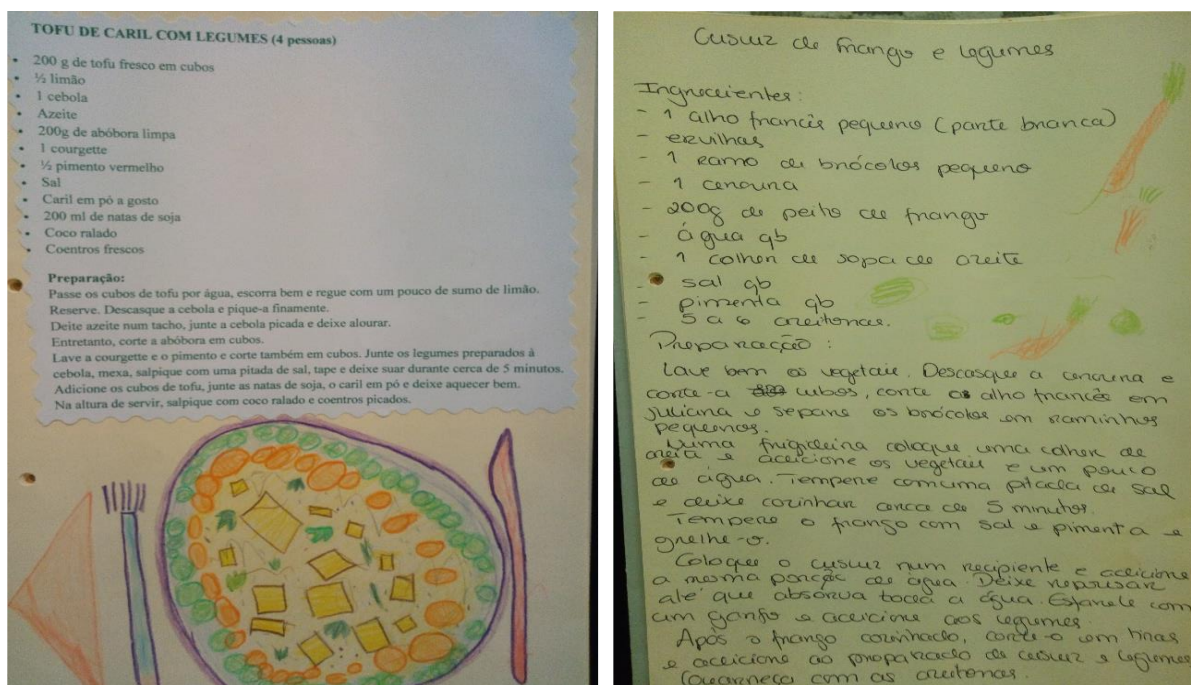 TOFU DE CARIL COM LEGUMES (4 pessoas)
• 200 g de tofu fresco em cubos
• ½ limão
• 1 cebola
• Azeite
• 200g de abóbora limpa
• 1 courgette
• ½ pimento vermelho
• Sal
• Caril em pó a gosto
• 200 ml de natas de soja
• Coco ralado
• Coentros frescos
Preparação:
Passe os cubos de tofu por água, escorra bem e regue com um pouco de sumo de limão.
Reserve. Descasque a cebola e pique-a finamente.
Deite azeite num tacho, junte a cebola picada e deixe alourar.
Entretanto, corte a abóbora em cubos.
Lave a courgette e o pimento e corte também em cubos. Junte os legumes preparados à
cebola, mexa, salpique com uma pitada de sal, tape e deixe suar durante cerca de 5 minutos.
Adicione os cubos de tofu, junte as natas de soja, o caril em pó e deixe aquecer bem.
Na altura de servir, salpique com coco ralado e coentros picados.
Cuscuz de frango e legumes
Ingredientes:
- 1 alho francês pequeno (parte branca)
- ervilhas
- 1 ramo de brócolos pequeno
- 1 cenoura
- 200g de peito de frango
- água qb
- 1 colher de sopa de azeite
- sal qb
- pimenta qb
- 5 a 6 azeitonas.
Preparação:
Lave bem os vegetais. Descasque a cenoura e
corte-a cubos, corte o alho francês em
juliana e separe os brócolos em raminhos
pequenos.
Numa frigideira coloque uma colher de
azeite e adicione os vegetais e um pouco
de água. Tempere com uma pitada de sal
e deixe cozinhar cerca de 5 minutos.
Tempere o frango com sal e pimenta e
grelhe-o.
Coloque o cuscuz num recipiente e adicione
a mesma porção de água. Deixe repousar
até que absorva toda a água. Esfarele com
um garfo e adicione aos legumes.
Após o frango cozinhado, corte-o em tiras
e adicione ao preparado de cuscuz e legumes
Guarneça com as azeitonas.